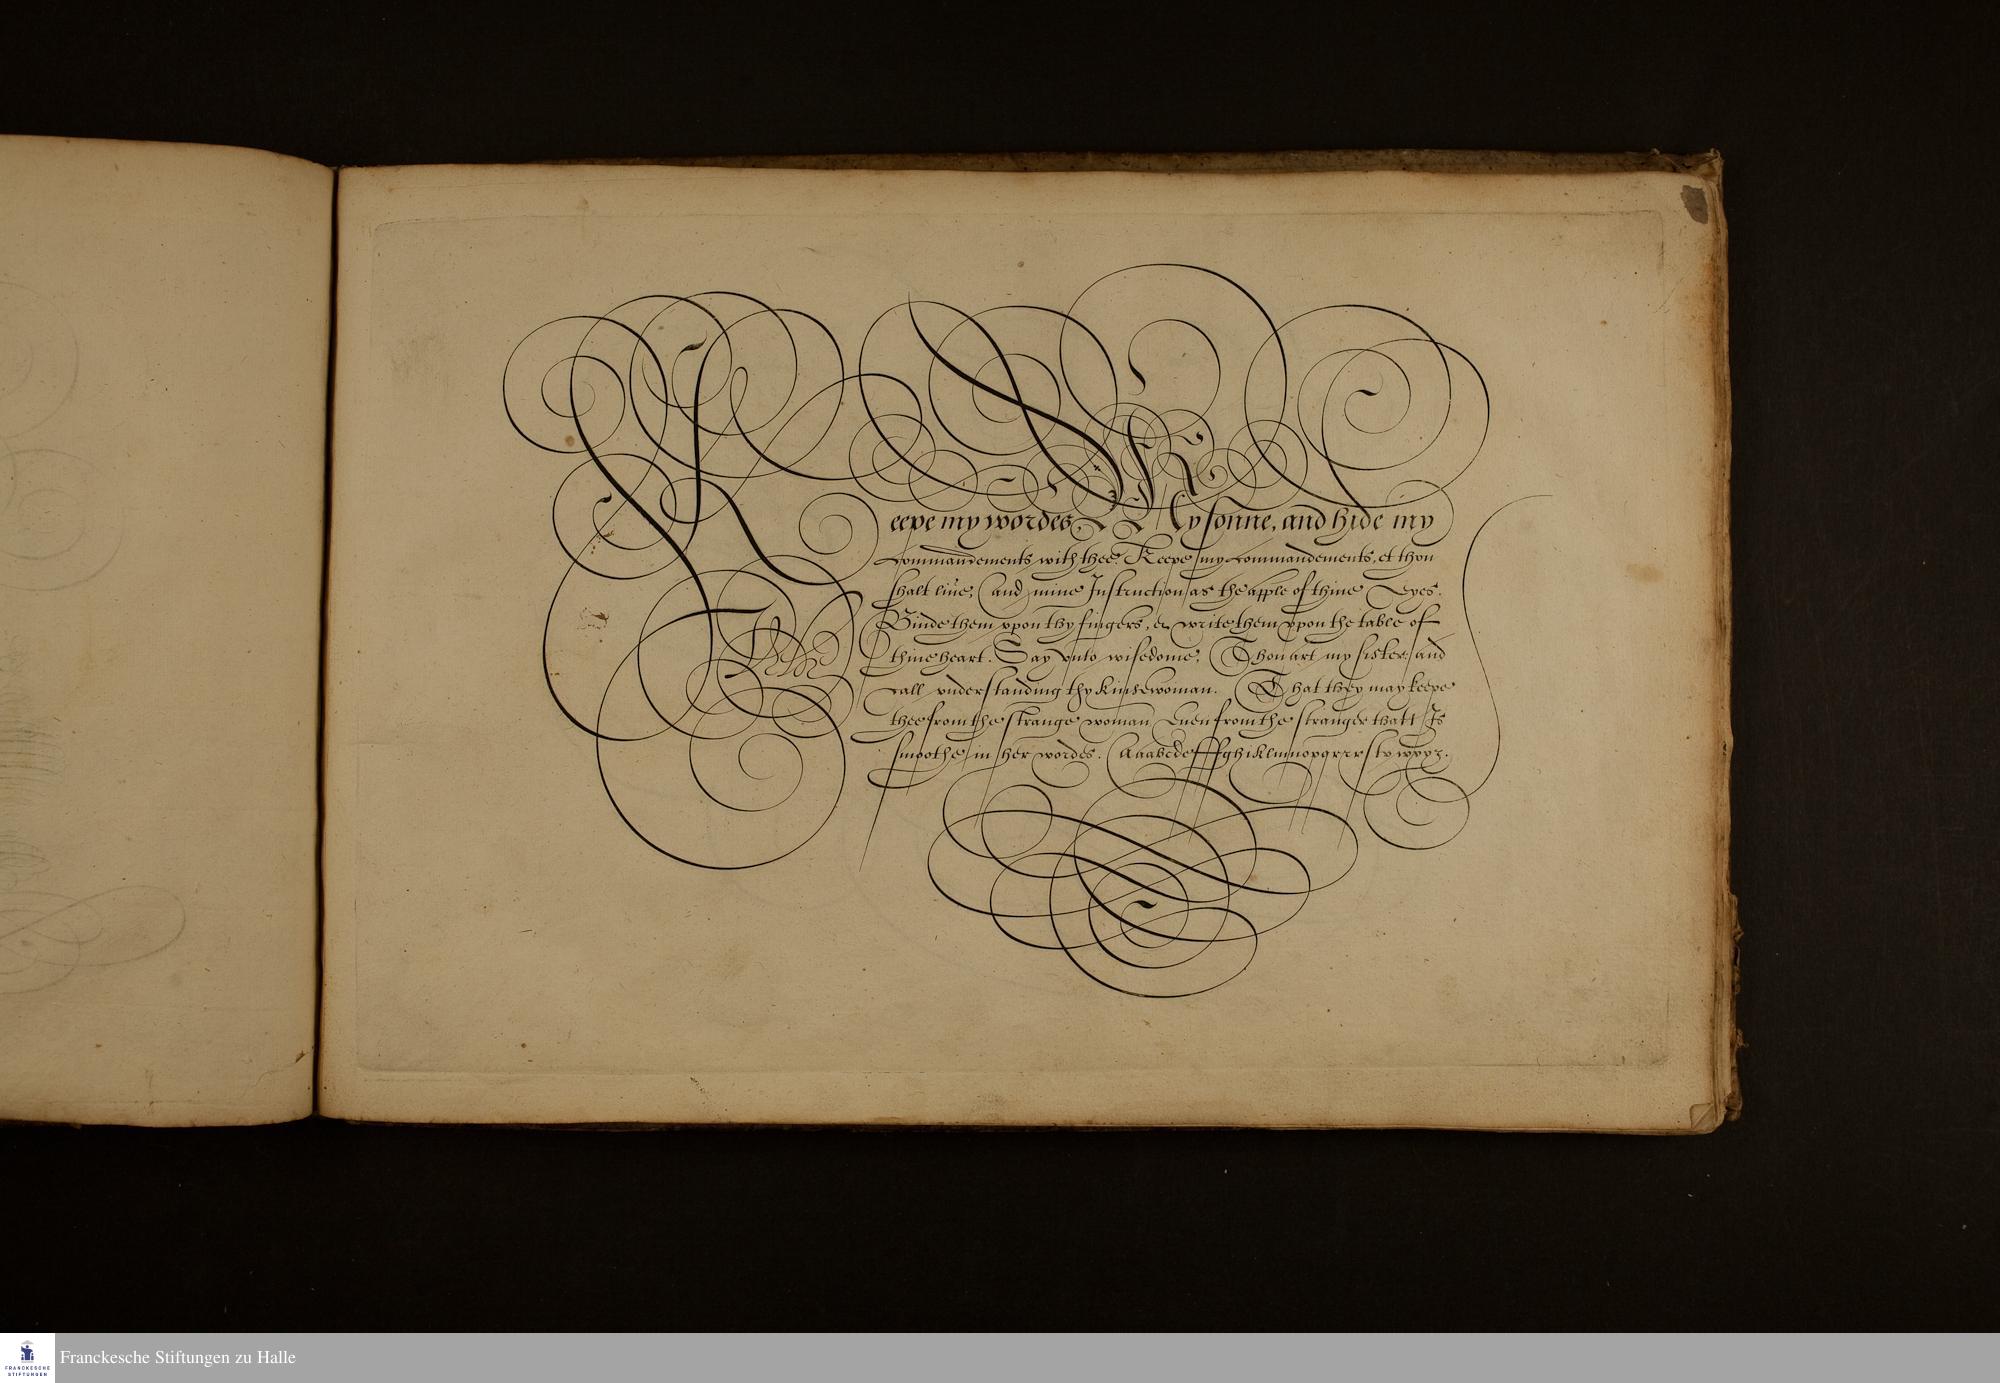 Keepe my wordes My sonne, and hide my
Commandements with thee. Keepe my Commandements, et thou
shalt liue, and mine Instruction as the apple of thine Eyes.
Binde them vpon thy fingers, & write them vpon the table of
thine heart. Say vnto wisedome, Thou art my sister, and
Call vnderstanding thy Kinsewoman. That they may keepe
thee from the strange woman Euen from the stranger thatt Is
smoothe in her wordes. Aaabcdeffghiklmnopqrrrstvwxyz.
Franckesche Stiftungen zu Halle
FRANCKESCHE
STIFTUNGEN